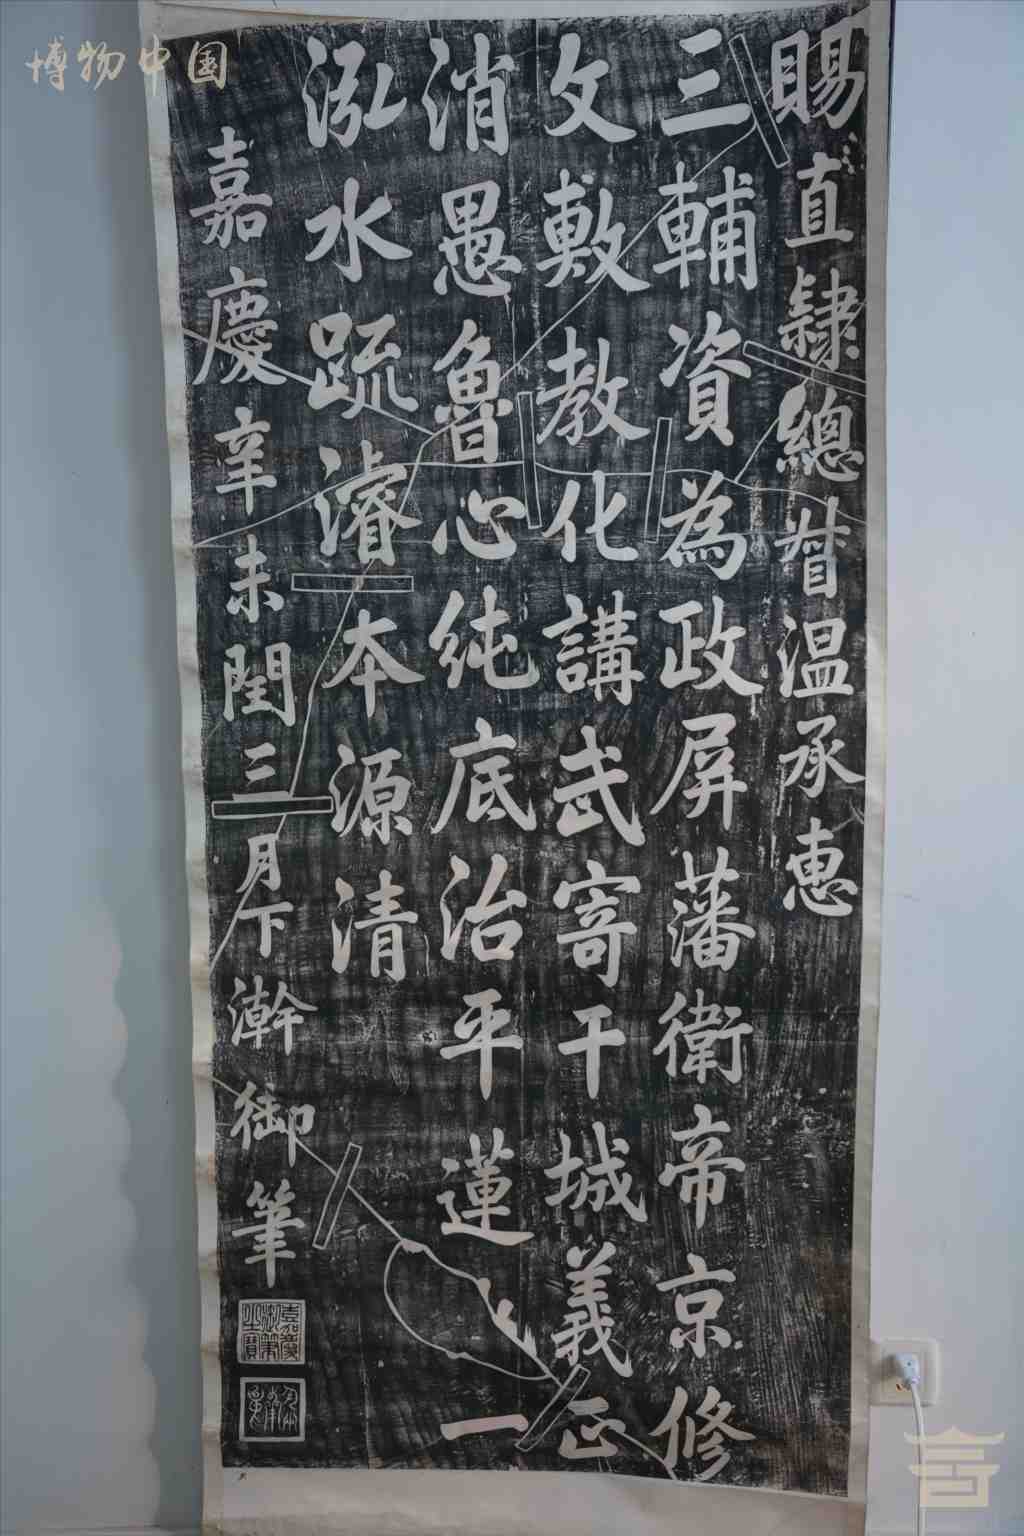 博物中国
賜直隸總督温承惠
三輔資為政屏藩衛帝京修
文敷教化講武寄干城義正
消愚魯心純底治平蓮一
泓水疏濬本源清
嘉慶辛未閏三月下澣御筆
嘉慶御筆之寶